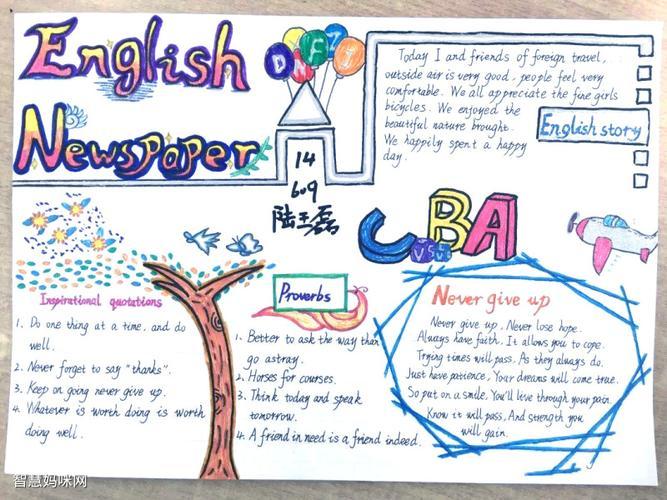 English
Newspaper
14
609
陆王磊
Today I and friends of foreign travel,
outside air is very good, people feel very
comfortable. We all appreciate the fine girls
bicycles. We enjoyed the
beautiful nature brought.
We happily spent a happy
day.
English story
CBA
Inspirational quotations
1. Do one thing at a time, and do
well.
2. Never forget to say "thanks".
3. Keep on going never give up.
4. Whatever is worth doing is worth
doing well.
Proverbs
1. Better to ask the way than
go astray.
2. Horses for courses.
3. Think today and speak
tomorrow.
4. A friend in need is a friend indeed.
Never give up
Never give up, Never lose hope.
Always have faith, It allows you to cope.
Trying times will pass, As they always do.
Just have patience, Your dreams will come true.
So put on a smile, You'll live through your pain.
Know it will pass, And strength you
will gain.
智慧妈咪网